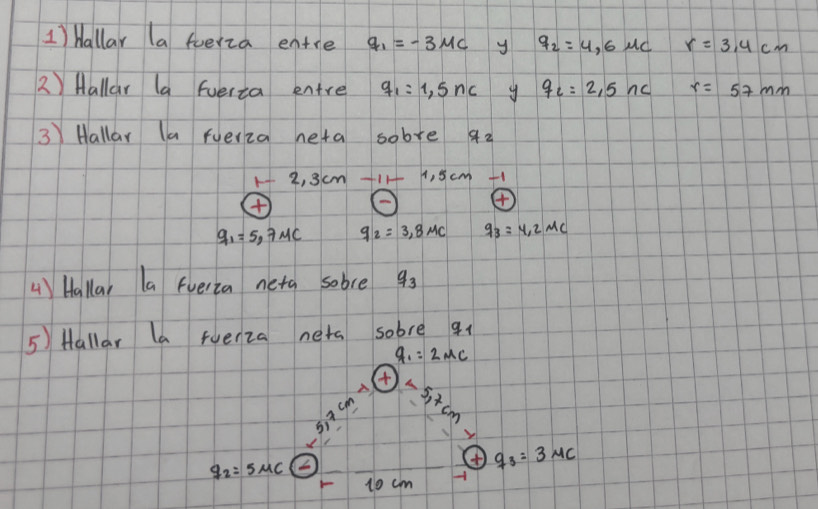 1) Hallar la fuerza entre q₁ = -3 μc y q₂ = 4,6 μc r = 3,4 cm
2) Hallar la fuerza entre q₁ = 1,5 nc y q₂ = 2,5 nc r = 57 mm
3) Hallar la fuerza neta sobre q₂
2,3cm 1,5cm
+ - +
q₁ = 5,7 μc q₂ = 3,8 μc q₃ = 4,2 μc
4) Hallar la fuerza neta sobre q₃
5) Hallar la fuerza neta sobre q₁
q₁ = 2 μc
+
5,7 cm 5,7 cm
q₂ = 5 μc - + q₃ = 3 μc
10 cm